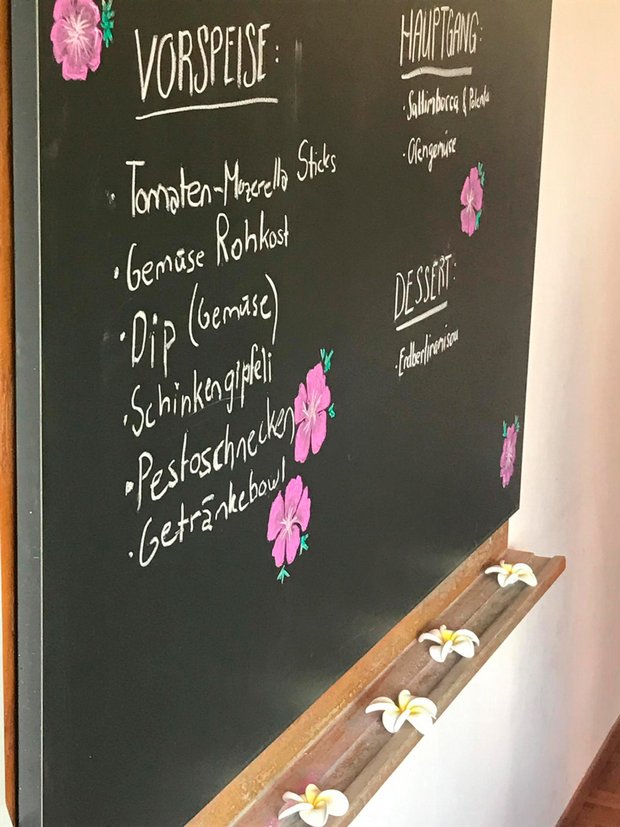 VORSPEISE:
· Tomaten-Mozerella Sticks
· Gemüse Rohkost
· Dip (Gemüse)
· Schinkengipfeli
· Pestoschnecken
· Getränkebowl
HAUPTGANG:
· Saltimbocca & Polenta
· Ofengemüse
DESSERT:
· Erdbertiramisou